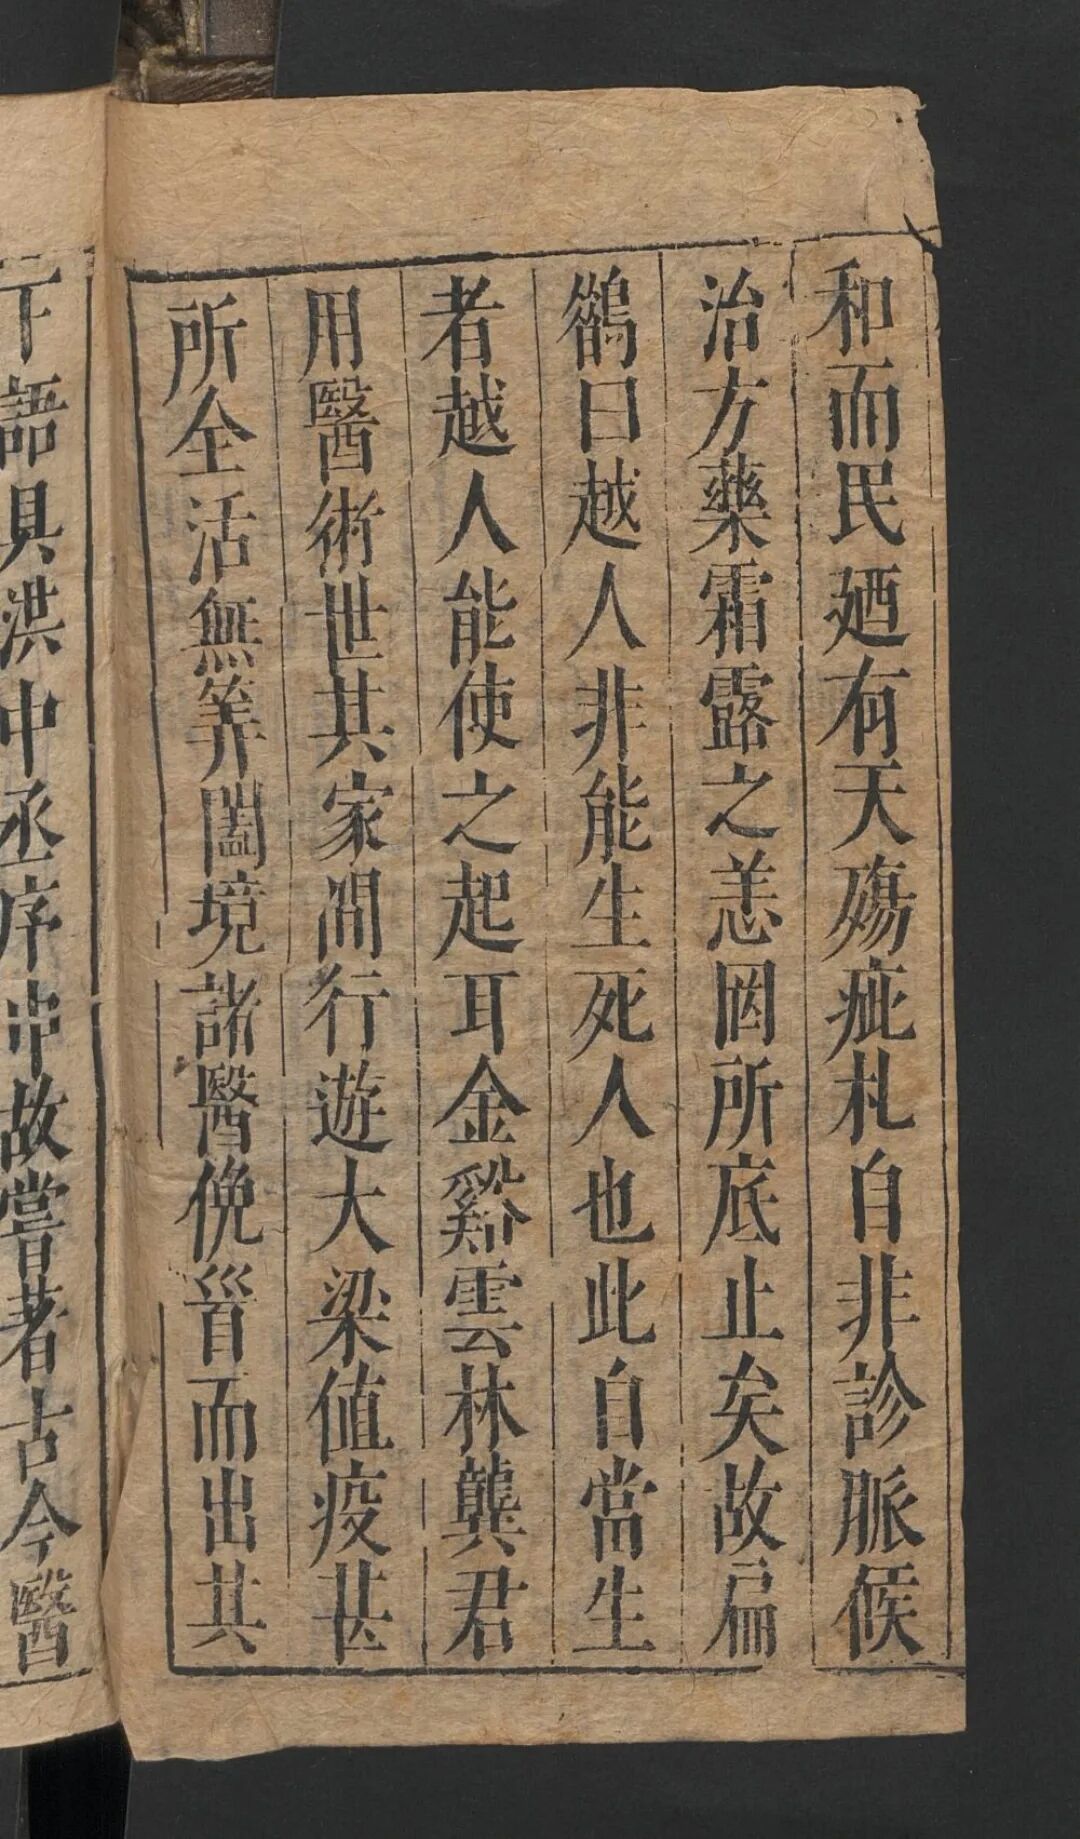 和而民廼有天殤疵札自非診脈候
治方藥霜露之恙罔所底止矣故扁
鶴曰越人非能生死人也此自當生
者越人能使之起耳金谿雲林龔君
用醫術世其家間行遊大梁值疫甚
所全活無筭闔境諸醫俛首而出其
下語具洪中丞序中故嘗著古今醫